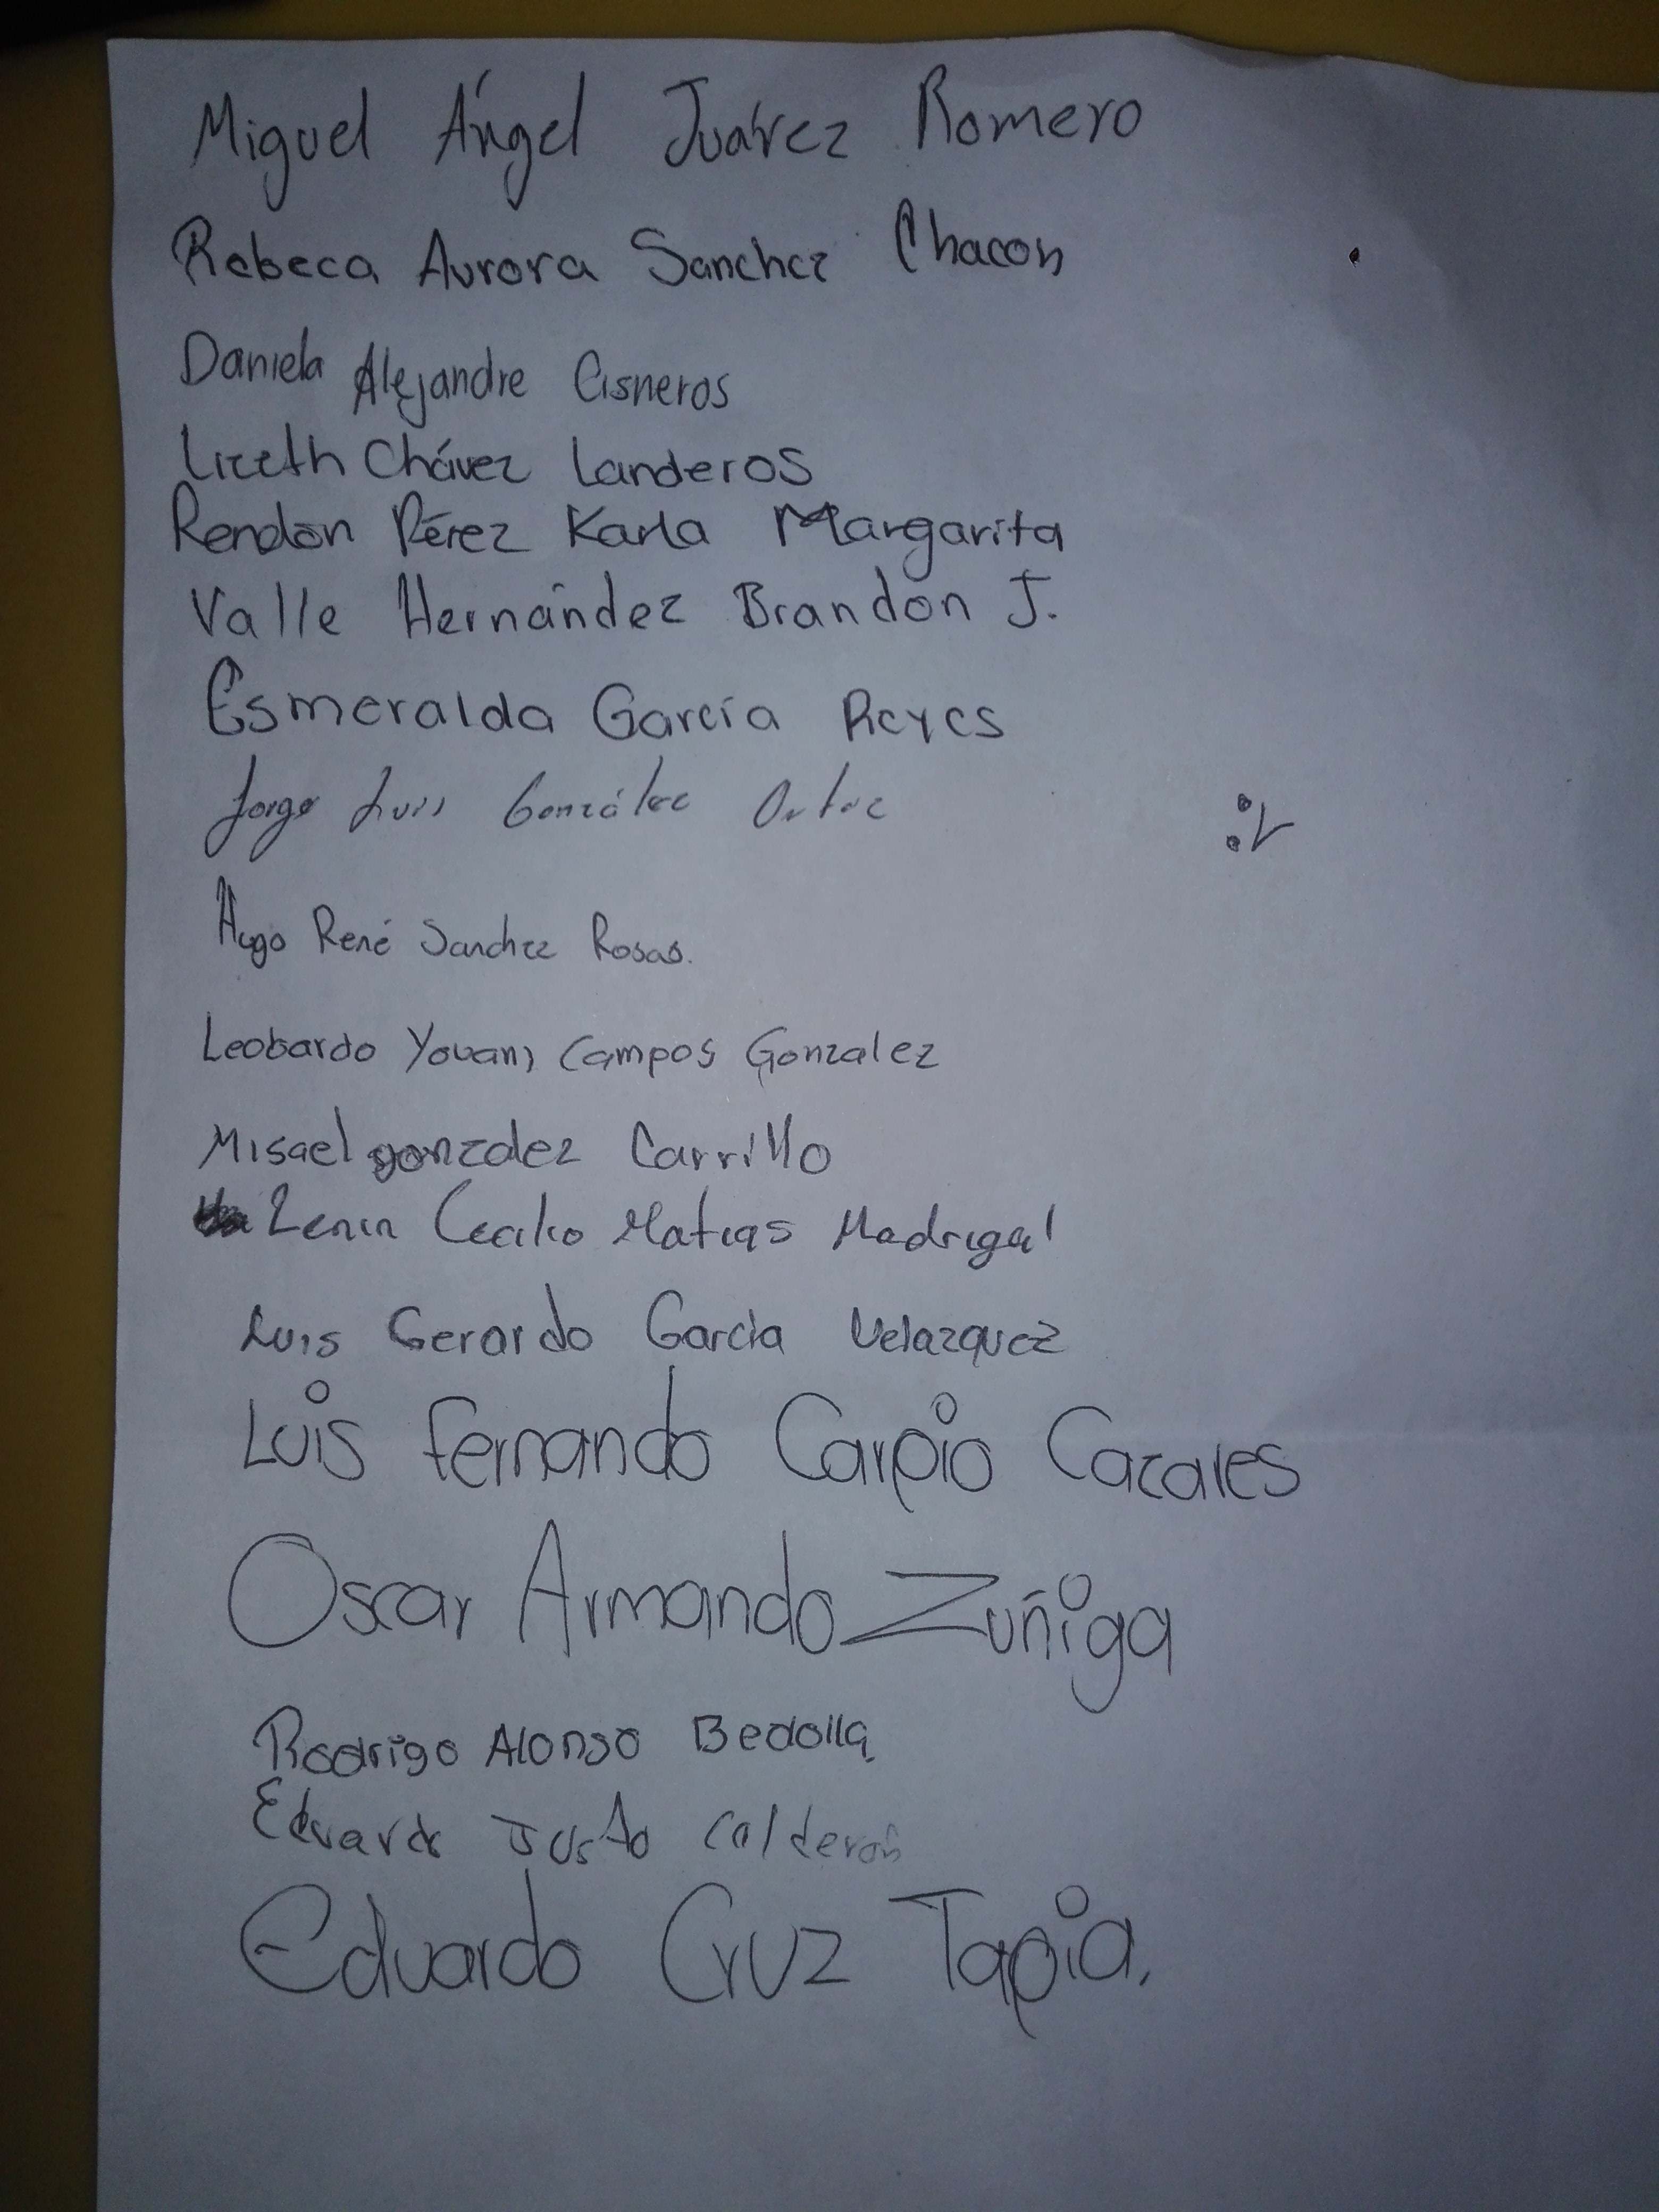 Miguel Ángel Juárez Romero
Rebeca Aurora Sanchez Chacon
Daniela Alejandre Cisneros
Lizeth Chávez Landeros
Rendón Pérez Karla Margarita
Valle Hernández Brandon J.
Esmeralda García Reyes
Jorge Luis González Ortiz
:v
Hugo René Sanchez Rosas.
Leobardo Yovani Campos Gonzalez
Misael gonzalez Carrillo
Lenin Cecilio Matias Madrigal
Luis Gerardo García Velazquez
Luis Fernando Carpio Cazares
Oscar Armando Zuñiga
Rodrigo Alonso Bedolla
Eduardo Justo Calderón
Eduardo Cruz Tapia.